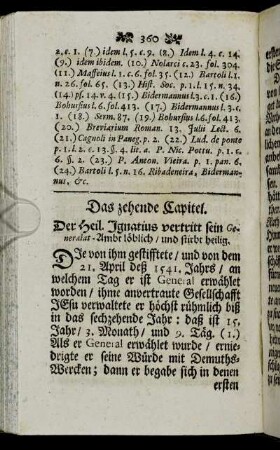 360
2. c. 1. (7.) idem l. 5. c. 9. (8.) Idem l. 4. c. 14.
(9.) idem ibidem. (10.) Nolarci c. 23. fol. 304.
(11.) Maffeius l. 1. c. 6. fol. 35. (12.) Bartoli l. 1.
n. 26. fol. 65. (13.) Hist. Soc. p. 1. l. 15. n. 34.
(14) pf. 14. v. 4. (15.) Bidermannus l. 3. c. 1. (16.)
Bohursius l. 6. fol. 413. (17.) Bidermannus l. 3. c.
1. (18.) Serm. 87. (19.) Bohursius l. 6. fol. 413.
(20.) Breviarium Roman. 13. Julii Lect. 6.
(21.) Cagnoli in Paneg. p. 2. (22.) Lud. de ponte
p. 1. l. 2. c. 13. §. 4. lit. a. P. Nic. Pottu. p. 1. c.
6. §. 2. (23.) P. Anton. Vieira. p. 1. pan. 6.
(24.) Bartoli l. 5. n. 16. Ribadeneira, Biderman-
nus, &c.
Das zehende Capitel.
Der Heil. Ignatius vertritt sein Ge-
neralat-Ambt löblich / und stirbt heilig.
Die von ihm gestifftete / und von dem
21. April deß 1541. Jahrs / an
welchem Tag er ist General erwählet
worden / ihme anvertraute Gesellschafft
JEsu verwaltete er höchst rühmlich biß
in das sechzehende Jahr: daß ist 15.
Jahr / 3. Monath / und 9. Täg. (1.)
Als er General erwählet wurde / ernie-
drigte er seine Würde mit Demuths-
Wercken; dann er begabe sich in denen
ersten